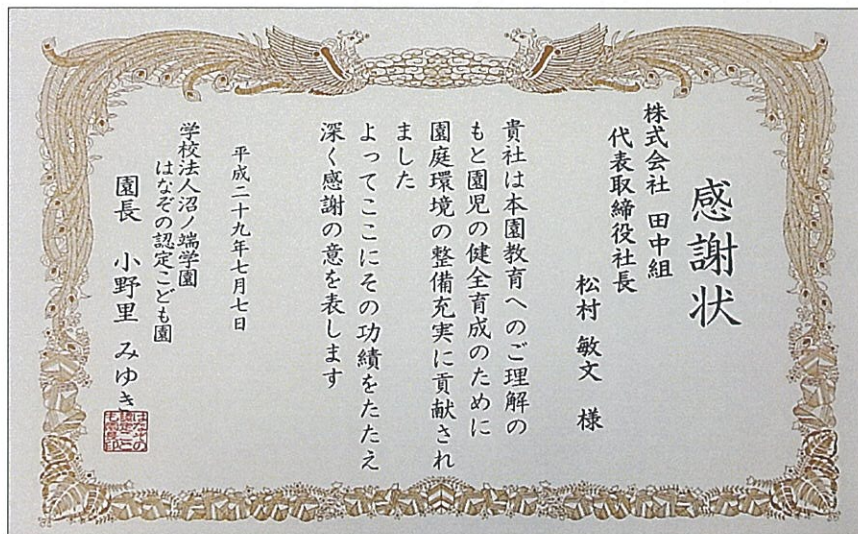 感謝状
株式会社 田中組
代表取締役社長
松村 敏文 様
貴社は本園教育へのご理解の
もと園児の健全育成のために
園庭環境の整備充実に貢献され
ました
よってここにその功績をたたえ
深く感謝の意を表します
平成二十九年七月七日
学校法人沼ノ端学園
はなぞの認定こども園
園長 小野里 みゆき